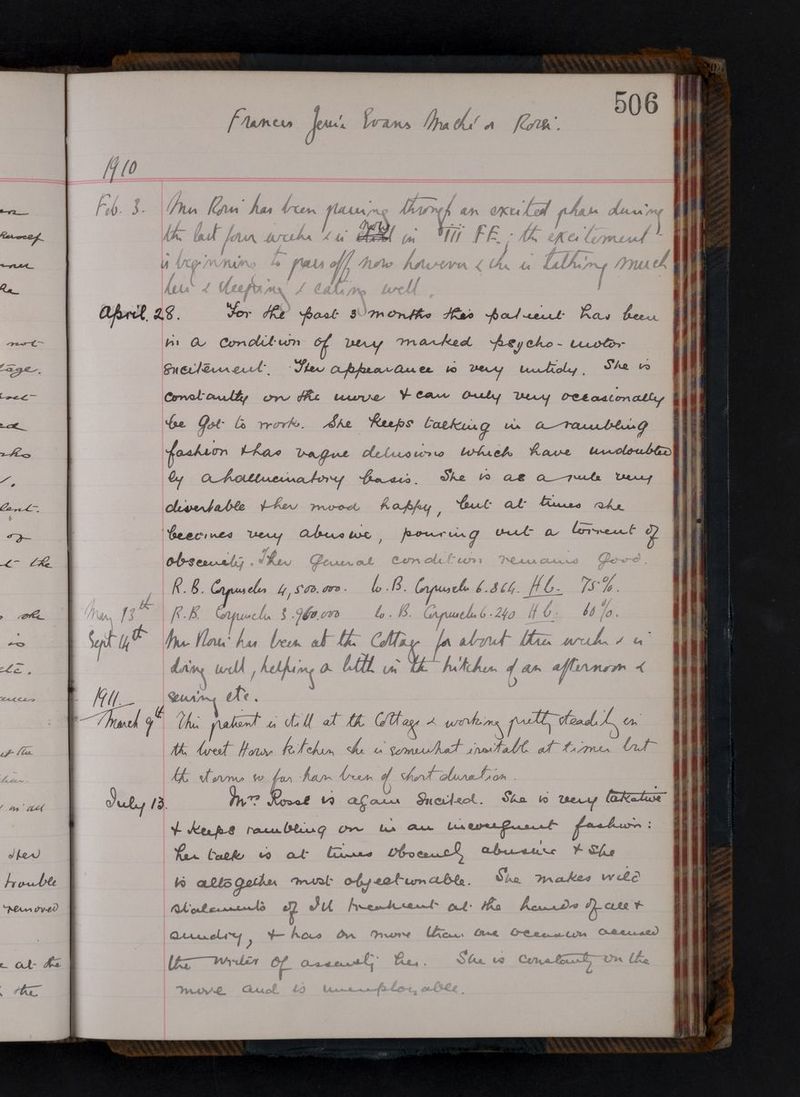 506
Frances Jessie Evans Mackie or Rossi.
1910
Feb. 3. Mrs Rossi has been passing through an excited phase during
the last four weeks & is now in III FE; the excitement
is beginning to pass off now however & she is talking much
less & sleeping & eating well.
April. 28. For the past 3 months this patient has been
in a condition of very marked psycho-motor
excitement. Her appearance is very untidy. She is
constantly on the move & can only very occasionally
be got to work. She keeps talking in a rambling
fashion & has vague delusions which have undoubted
ly a hallucinatory basis. She is as a rule very
divertable & her mood happy, but at times she
becomes very abusive, pouring out a torrent of
obscenity. Her general condition remains good.
R. B. Corpuscles 4,500.000. W. B. Corpuscles 6.864. Hb. 75%.
May 13th R. B. Corpuscles 3.960.000 W. B. Corpuscles 6.240 Hb: 60%.
Sept 14th Mrs Rossi has been at the Cottage for about three weeks & is
doing well, helping a little in the kitchen of an afternoon &
sewing etc.
1911.
March 9th This patient is still at the Cottage & working pretty steadily in
the West House kitchen she is somewhat irritable at times but
the storms so far have been of short duration.
July 13. Mrs Rossi is again excited. She is very talkative
& keeps rambling on in an incongruent fashion:
her talk is at times obscenely abusive & she
is altogether most objectionable. She makes wild
statements of ill treatment at the hands of all &
sundry, & has on more than one occasion accused
the writer of assaulting her. She is constantly on the
move and is unemployable.